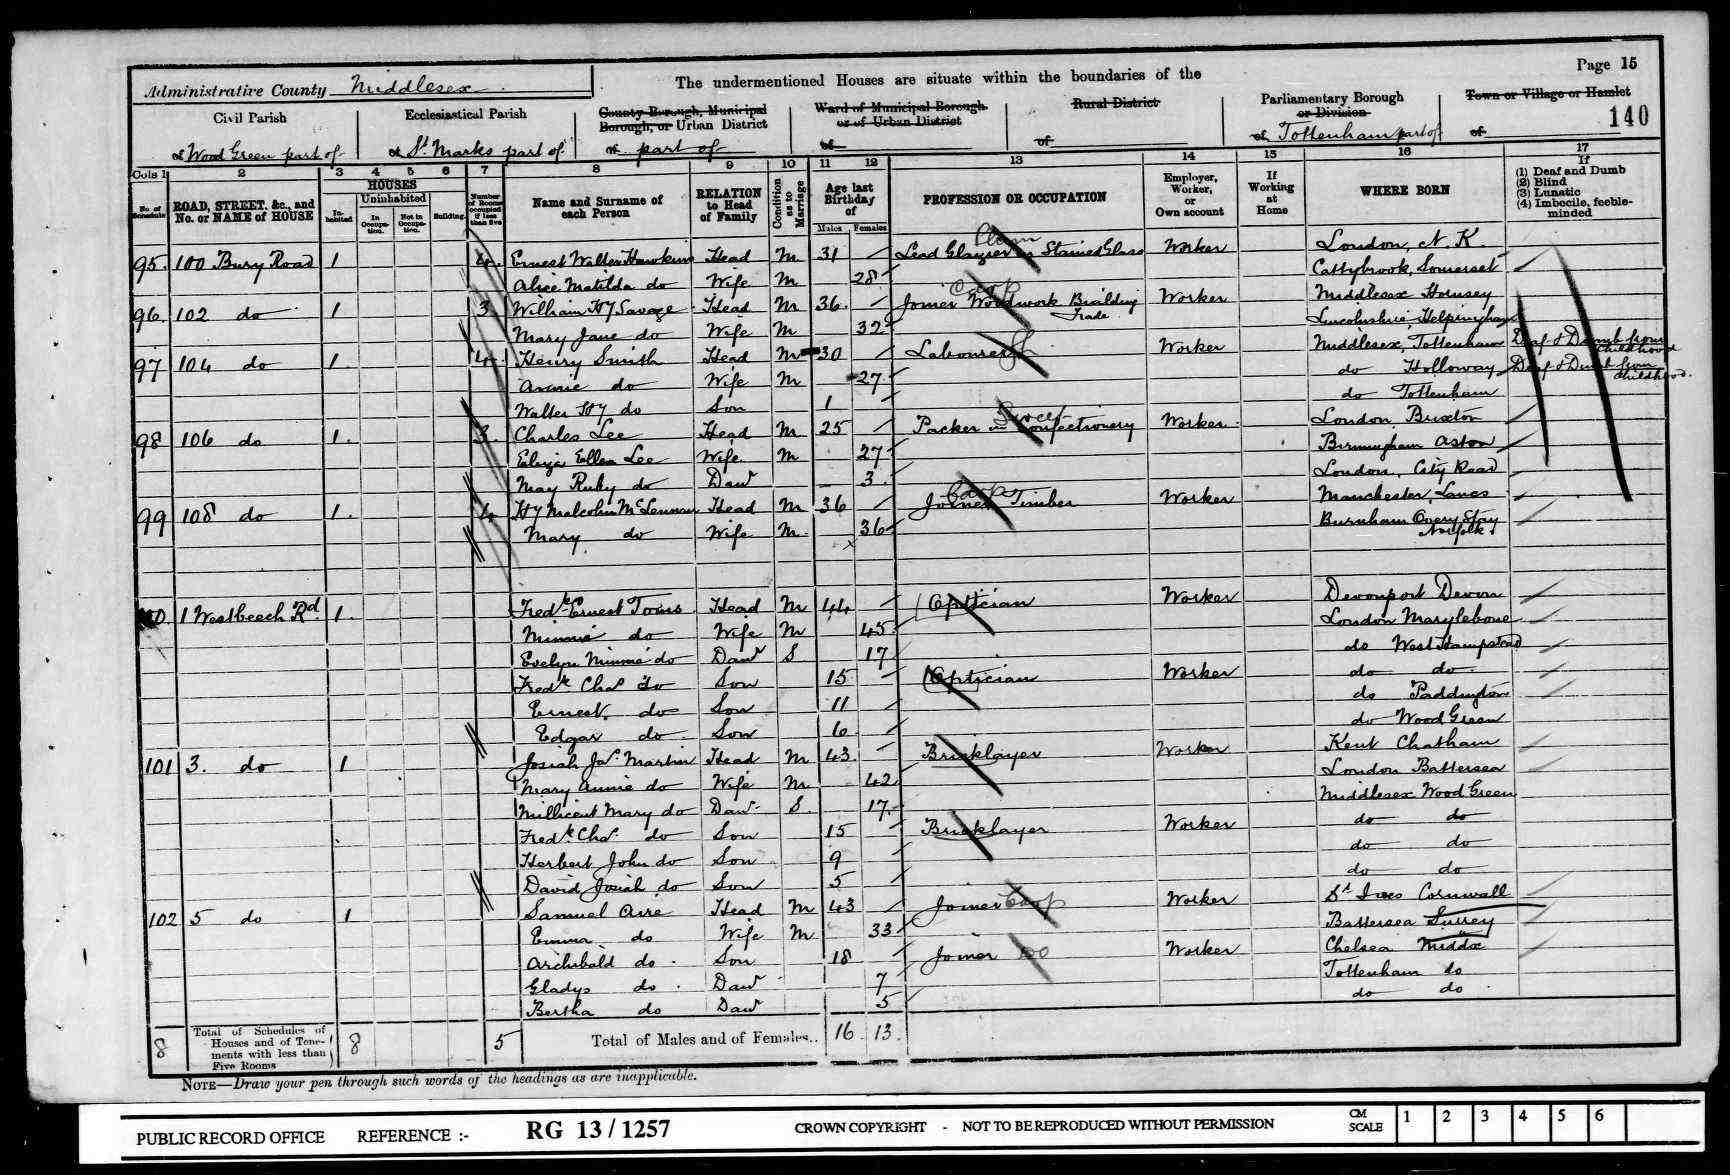 Page 15
Administrative County Middlesex
The undermentioned Houses are situate within the boundaries of the
Civil Parish
of Wood Green part of
Ecclesiastical Parish
of St. Marks part of
County Borough, Municipal Borough, or Urban District
of part of
Ward of Municipal Borough or of Urban District
of
Rural District
of
Parliamentary Borough or Division
of Tottenham part of
Town or Village or Hamlet
of
140
Cols 1 2 3 4 5 6 7 8 9 10 11 12 13 14 15 16 17
No. of Schedule
ROAD, STREET, &c., and No. or NAME of HOUSE
HOUSES
Inhabited
Uninhabited
In Occupation.
Not in Occupation.
Building.
Number of Rooms occupied if less than five
Name and Surname of each Person
RELATION to Head of Family
Condition as to Marriage
Age last Birthday of
Males Females
PROFESSION OR OCCUPATION
Employer, Worker, or Own account
If Working at Home
WHERE BORN
If
(1) Deaf and Dumb
(2) Blind
(3) Lunatic
(4) Imbecile, feeble-minded
95. 100 Bury Road 1 4. Ernest Walter Hawkins Head M 31 Lead Glazier in Stained Glass Worker London, N.K.
Alice Matilda do Wife M 28 Cattybrook, Somerset
96. 102 do 1 3. William Hy Savage Head M 36. Joiner Woodwork Building Trade Carp Worker Middlesex Hornsey
Mary Jane do Wife M 32 Lincolnshire, Helpringham
97 104 do 1. 4. Henry Smith Head M 30 Labourer Worker Middlesex, Tottenham Deaf & Dumb from childhood
Annie do Wife M 27 do Holloway Deaf & Dumb from childhood.
Walter Hy do Son 1 do Tottenham
98 106 do 1. 3. Charles Lee Head M 25 Packer in Confectionery Sweet Worker London, Brixton
Eliza Ellen Lee Wife M 27 Birmingham Aston
May Ruby do Daur 3 London, City Road
99 108 do 1. 4. Hy Malcolm McLennan Head M 36 Joiner Timber Carp Worker Manchester, Lancs
Mary do Wife M 36 Burnham Overy Stay Norfolk.
1 Westbeech Rd. 1. Fredk Ernest Head M 44 Optician Worker Devonport Devon
Minnie do Wife M 45 London Marylebone
Evelyn Minnie do Daur S 17 do West Hampstead
Fredk Chas do Son 15 Optician Worker do do
Ernest do Son 11 do Paddington
Edgar do Son 6 do Wood Green
101 3. do 1 Josiah Jas. Martin Head M 43. Bricklayer Worker Kent Chatham
Mary Annie do Wife M 42 London Battersea
Millicent Mary do Daur S. 17. Middlesex Wood Green
Fredk. Chas. do Son 15 Bricklayer Worker do do
Herbert John do Son 9 do do
David Josiah do Son 5 do do
102 5 do 1 Samuel Head M 43 Joiner Carp Worker St Ives Cornwall
Emma do Wife M 33 Battersea Surrey
Archibald do Son 18 Joiner do Worker Chelsea Middx
Gladys do Daur 7 Tottenham do
Bertha do Daur 5 do do
8 Total of Schedules of Houses and of Tenements with less than Five Rooms 8 5 Total of Males and of Females.. 16 13
NOTE—Draw your pen through such words of the headings as are inapplicable.
PUBLIC RECORD OFFICE REFERENCE :- RG 13 / 1257 CROWN COPYRIGHT - NOT TO BE REPRODUCED WITHOUT PERMISSION CM SCALE 1 2 3 4 5 6